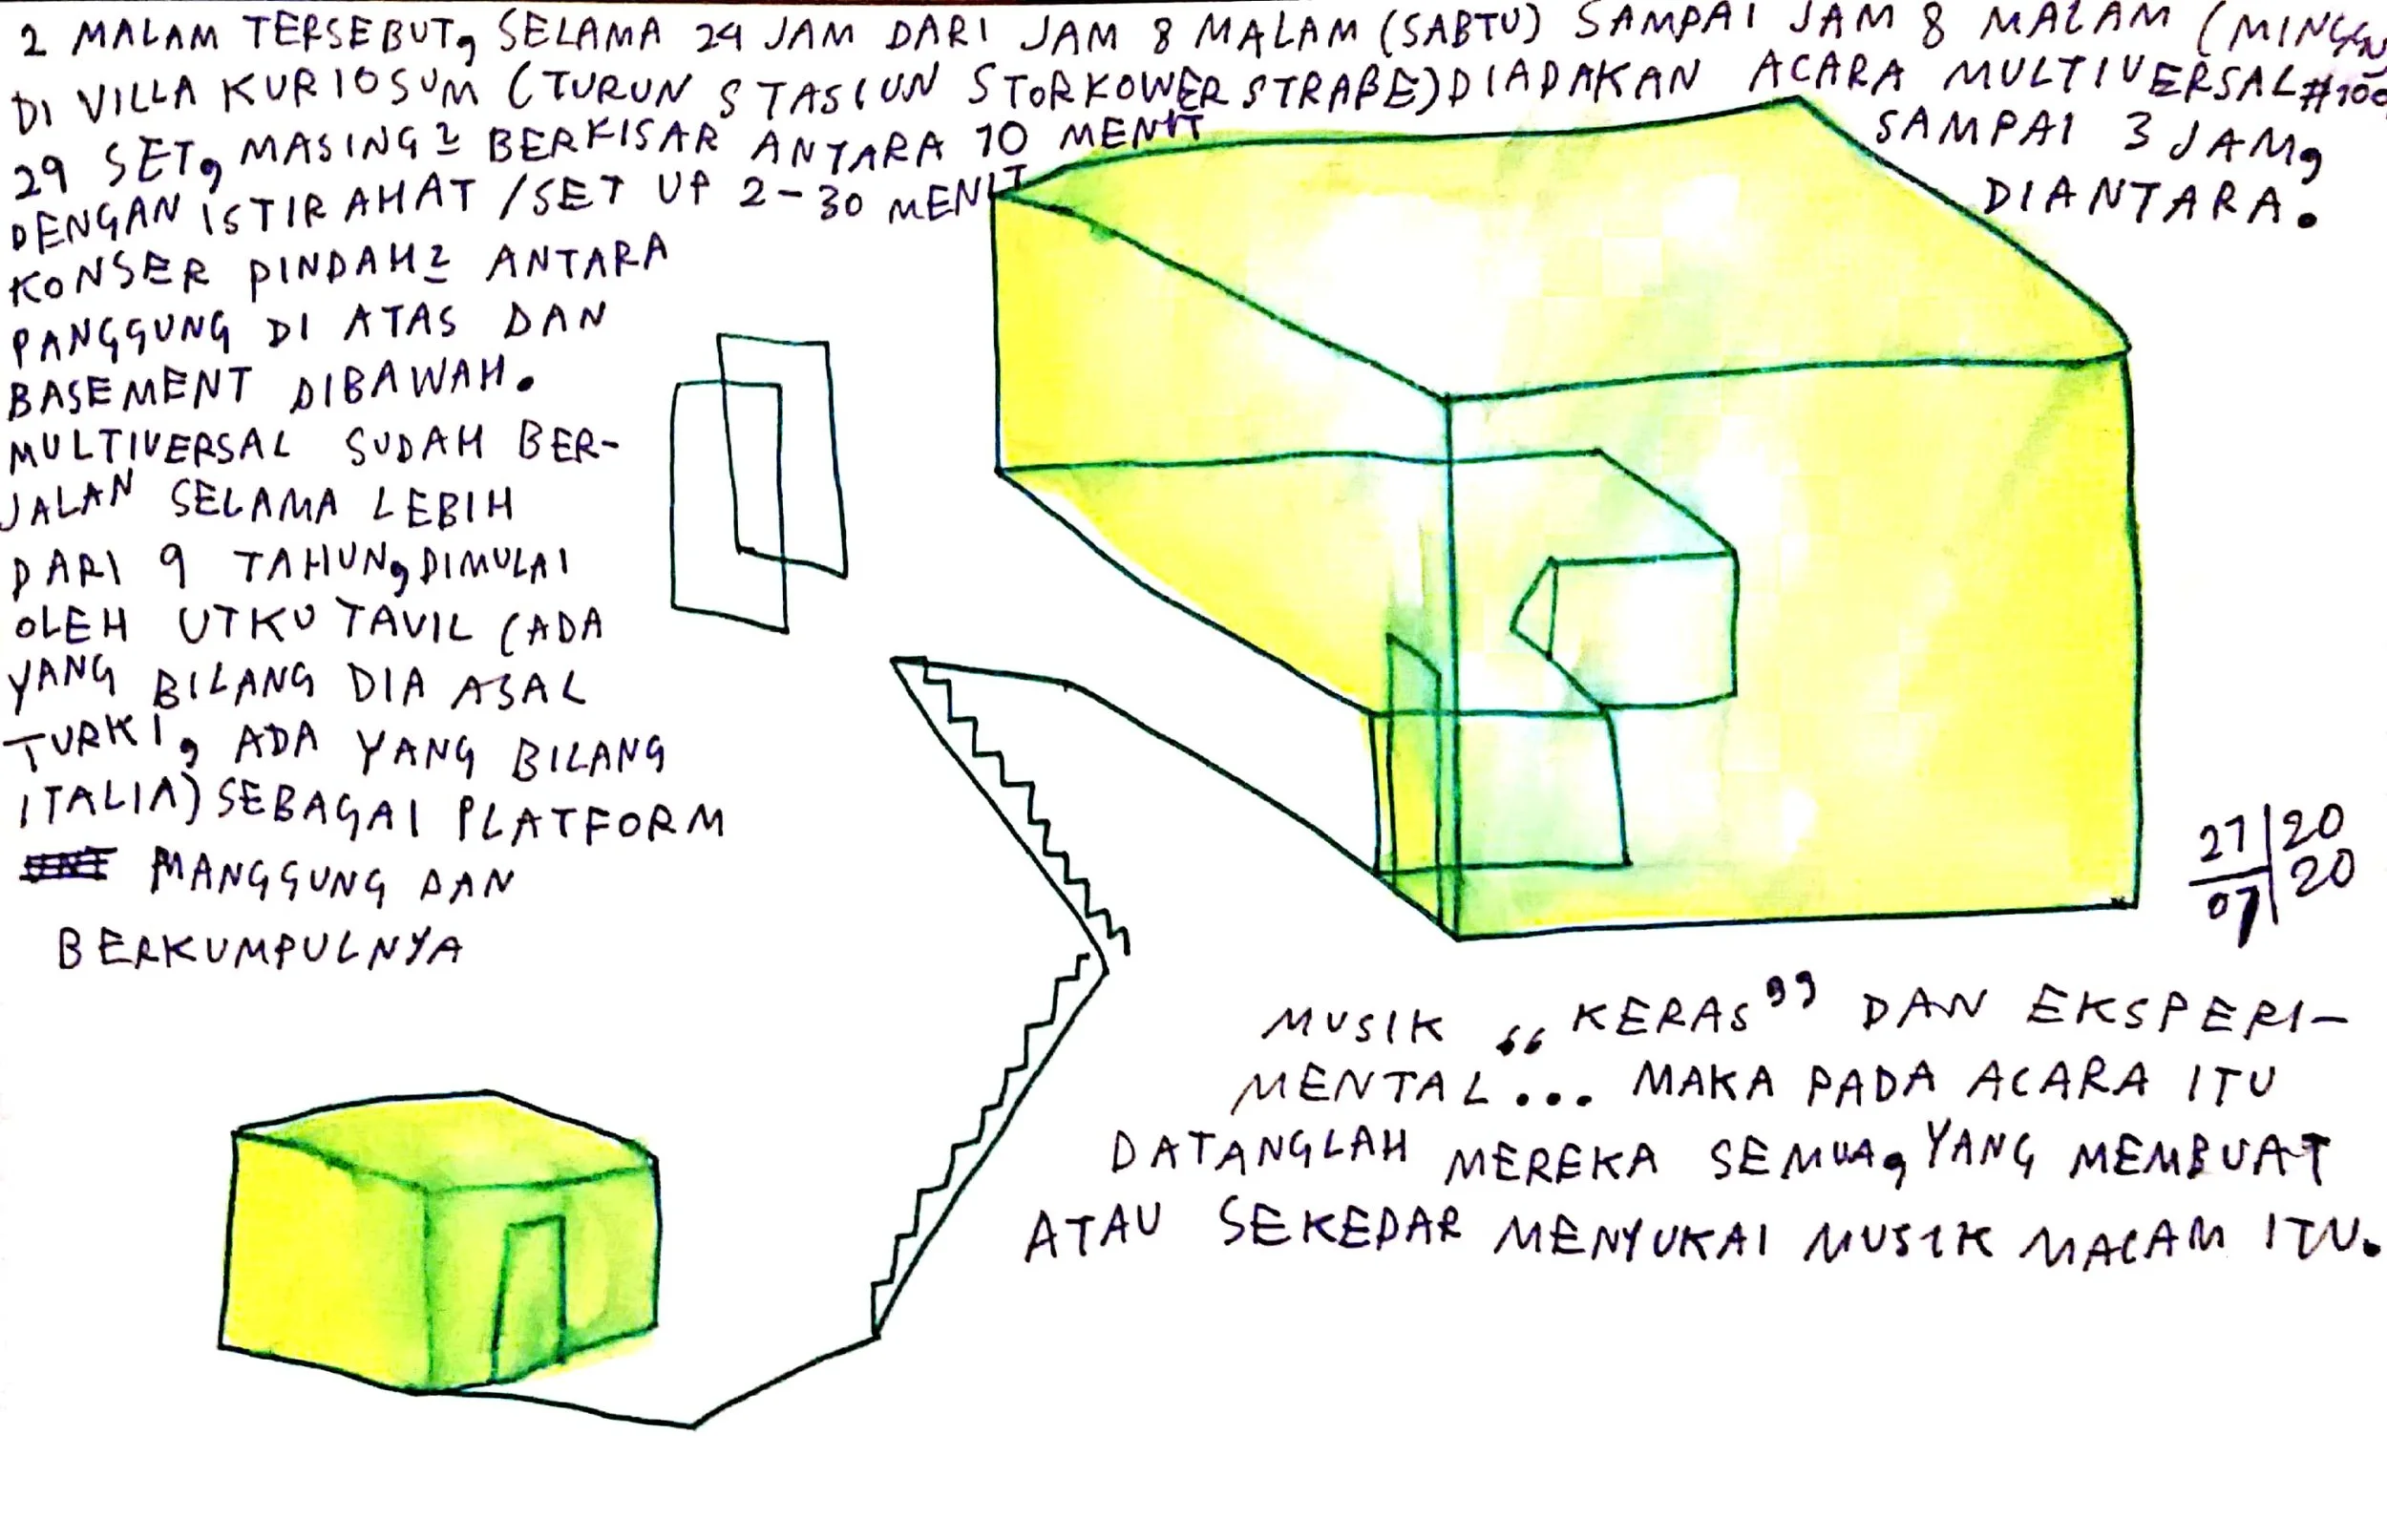 2 MALAM TERSEBUT, SELAMA 24 JAM DARI JAM 8 MALAM (SABTU) SAMPAI JAM 8 MALAM (MINGGU)
DI VILLA KURIOSUM (TURUN STASIUN STORKOWER STRAßE) DIADAKAN ACARA MULTIVERSAL #100,
29 SET, MASING2 BERKISAR ANTARA 10 MENIT SAMPAI 3 JAM,
DENGAN ISTIRAHAT / SET UP 2-30 MENIT DIANTARA.
KONSER PINDAH2 ANTARA
PANGGUNG DI ATAS DAN
BASEMENT DIBAWAH.
MULTIVERSAL SUDAH BER-
JALAN SELAMA LEBIH
DARI 9 TAHUN, DIMULAI
OLEH UTKU TAVIL (ADA
YANG BILANG DIA ASAL
TURKI, ADA YANG BILANG
ITALIA) SEBAGAI PLATFORM
MANGGUNG DAN
BERKUMPULNYA
27/07 2020
MUSIK „KERAS” DAN EKSPERI-
MENTAL... MAKA PADA ACARA ITU
DATANGLAH MEREKA SEMUA, YANG MEMBUAT
ATAU SEKEDAR MENYUKAI MUSIK MACAM ITU.